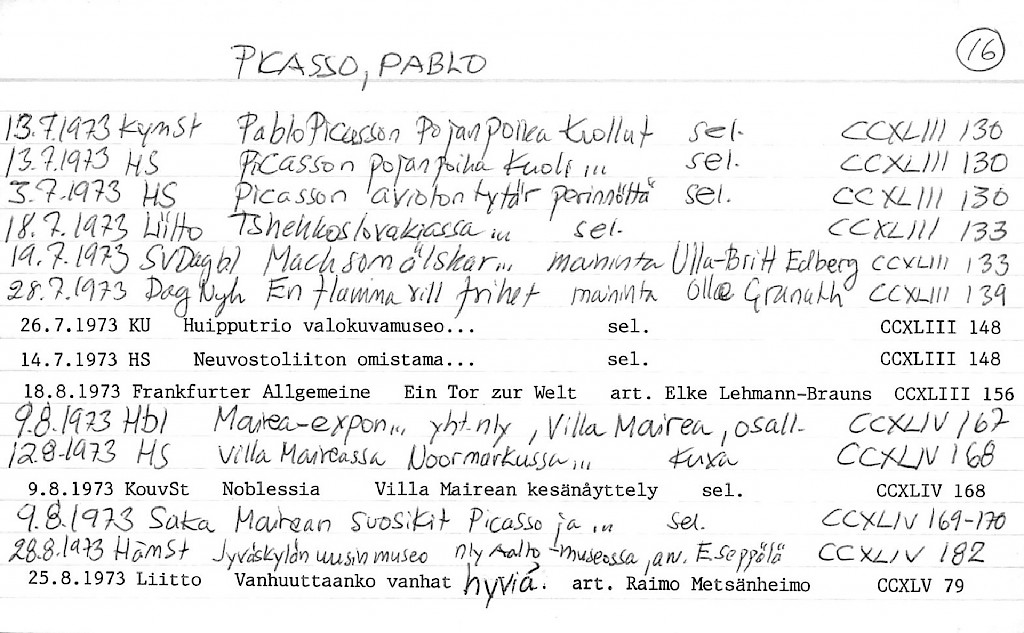 16
PICASSO, PABLO
13.7.1973 KymSt Pablo Picasson pojanpoika kuollut sel. CCXLIII 130
13.7.1973 HS Picasson pojanpoika kuoli ... sel. CCXLIII 130
3.7.1973 HS Picasson avioton tytär perinnöttä sel. CCXLIII 130
18.7.1973 Liitto Tshekkoslovakiassa ... sel. CCXLIII 133
19.7.1973 SvDagbl Mach som älskar... maininta Ulla-Britt Edberg CCXLIII 133
28.7.1973 DagNyh En flamma vill frihet maininta Olle Granath CCXLIII 139
26.7.1973 KU Huipputrio valokuvamuseo... sel. CCXLIII 148
14.7.1973 HS Neuvostoliiton omistama... sel. CCXLIII 148
18.8.1973 Frankfurter Allgemeine Ein Tor zur Welt art. Elke Lehmann-Brauns CCXLIII 156
9.8.1973 Hbl Mairea-expon... yht.nly, Villa Mairea, osall. CCXLIV 167
12.8.1973 HS Villa Maireassa Noormarkussa... kuva CCXLIV 168
9.8.1973 KouvSt Noblessia Villa Mairean kesänåyttely sel. CCXLIV 168
9.8.1973 SaKa Mairean suosikit Picasso ja ... sel. CCXLIV 169-170
28.8.1973 HämSt Jyväskylän uusin museo nly Aalto-museossa, arv. E Seppälä CCXLIV 182
25.8.1973 Liitto Vanhuuttaanko vanhat hyviä. art. Raimo Metsänheimo CCXLV 79